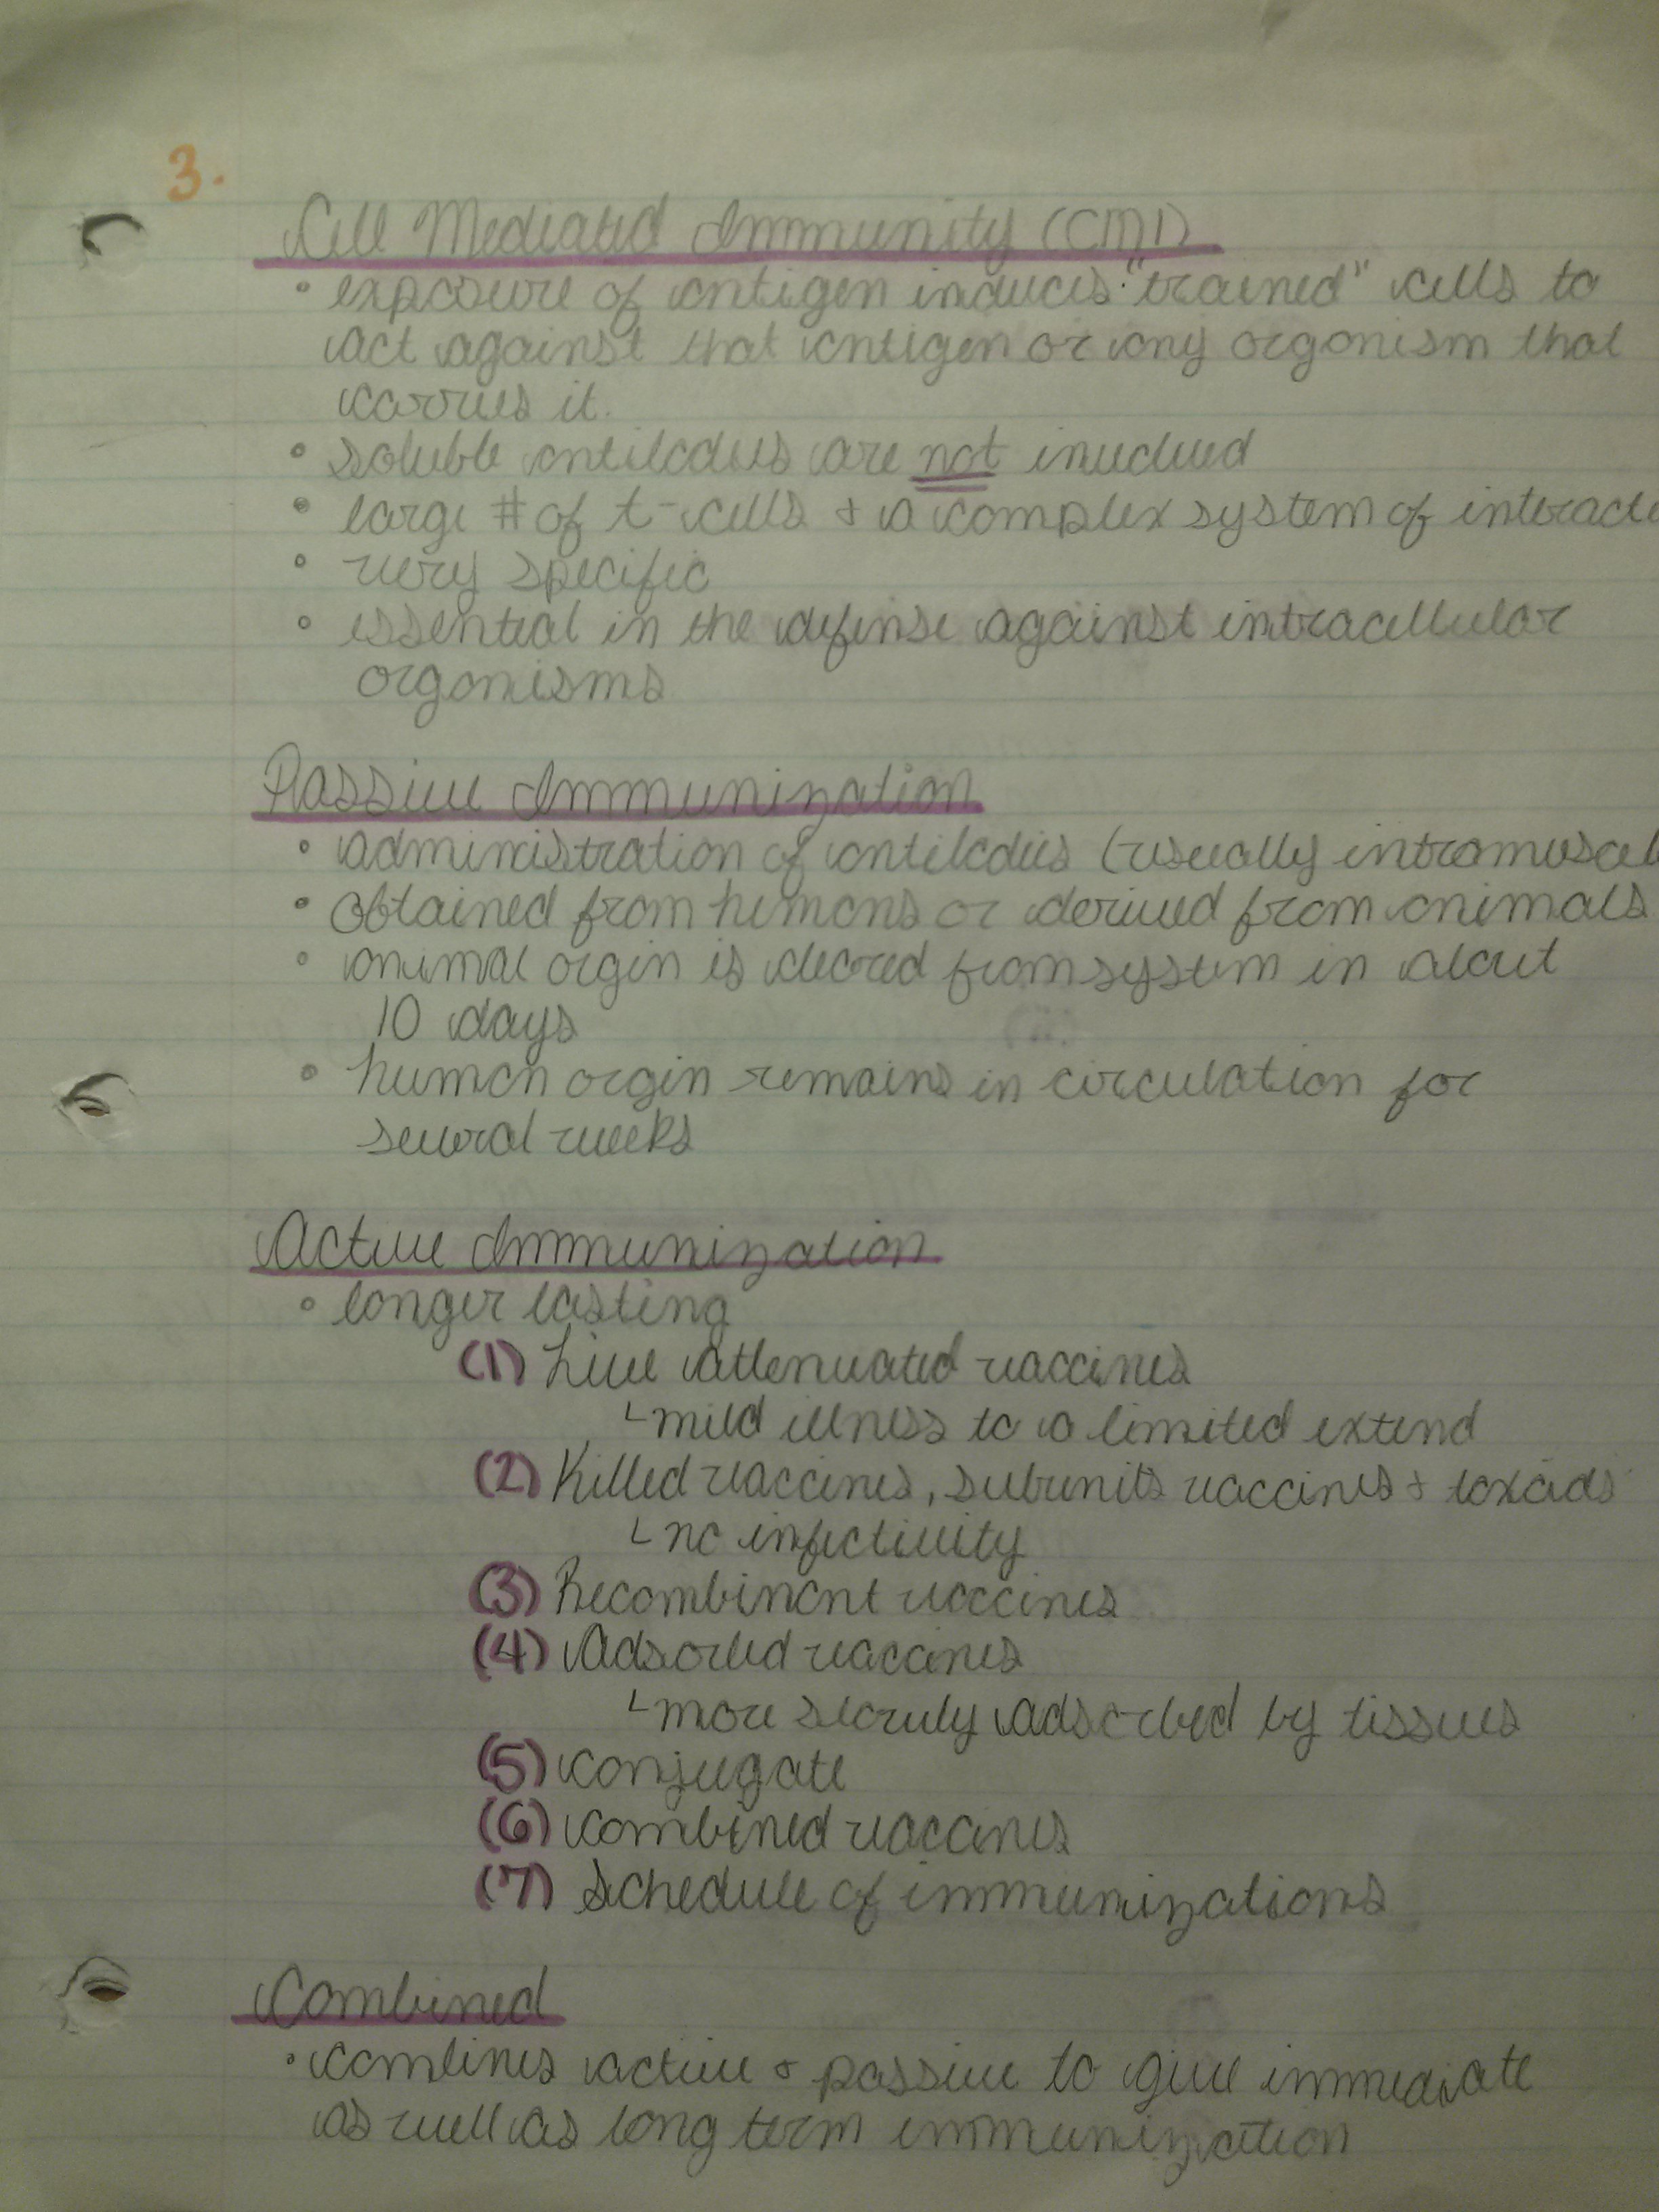 3.
Cell Mediated Immunity (CMI)
• exposure of antigen induces "trained" cells to
act against that antigen or any organism that
carries it.
• soluble antibodies are not involved
• large # of t-cells + a complex system of interacti
• very specific
• essential in the defense against intracellular
organisms
Passive Immunization
• administration of antibodies (usually intramuscul
• obtained from humans or derived from animals
• animal orgin is cleared from system in about
10 days
• human orgin remains in circulation for
several weeks
Active Immunization
• longer lasting
(1) Live attenuated vaccines
└ mild illness to a limited extend
(2) Killed vaccines, subunits vaccines + toxoids
└ no infectivity
(3) Recombinant vaccines
(4) Adsorbed vaccines
└ more slowly adsorbed by tissues
(5) conjugate
(6) combined vaccines
(7) schedule of immunizations
Combined
• combines active + passive to give immediate
as well as long term immunization